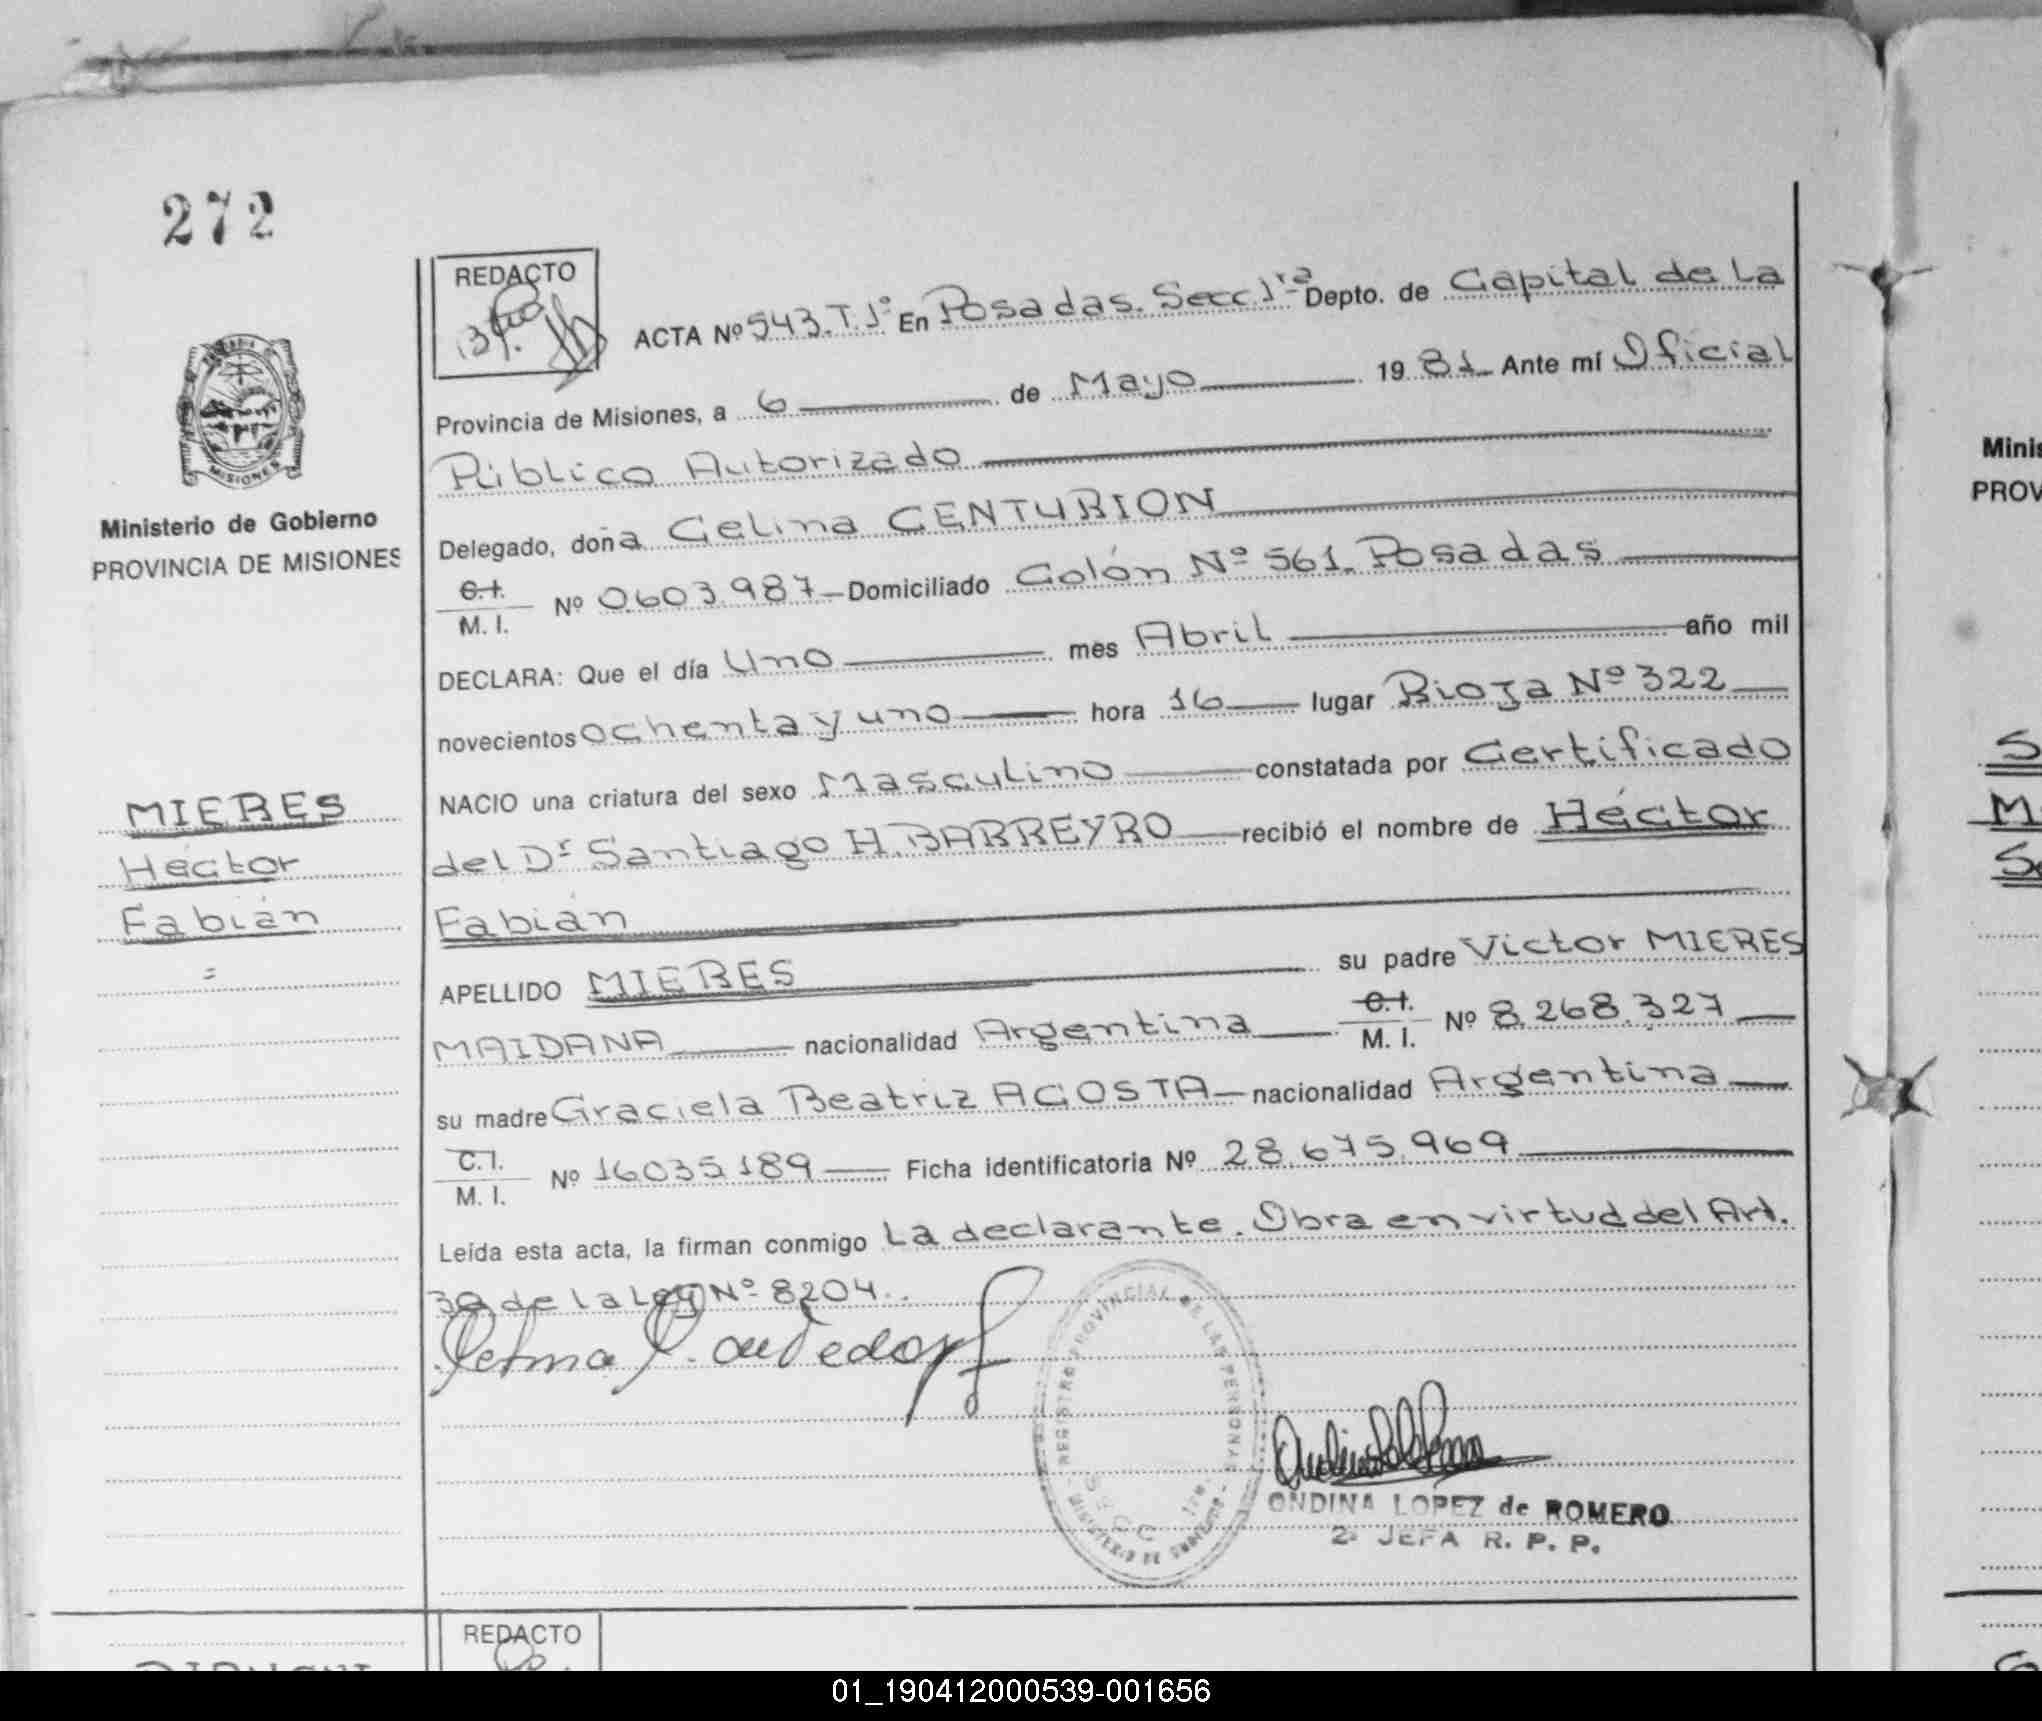 272
REDACTO
ACTA Nº 543. T. 1º En Posadas. Secc 1ra Depto. de Capital de La
Provincia de Misiones, a 6 de Mayo 1981 Ante mí Oficial
Público Autorizado
Delegado, doña Celina CENTURION
C.I. / M. I. Nº 0.603.987 Domiciliado Colón Nº 561. Posadas
DECLARA: Que el día Uno mes Abril año mil
novecientos ochenta y uno hora 16 lugar Rioja Nº 322
NACIO una criatura del sexo Masculino constatada por Certificado
del Dr Santiago H. BARREYRO recibió el nombre de Héctor
Fabián
APELLIDO MIERES su padre Victor MIERES
MAIDANA nacionalidad Argentina C.I. / M. I. Nº 8.268.327
su madre Graciela Beatriz ACOSTA nacionalidad Argentina
C.I. / M. I. Nº 16.035.189 Ficha identificatoria Nº 28.675.969
Leída esta acta, la firman conmigo La declarante. Obra en virtud del Art.
30 de la Ley Nº 8204.
REGISTRO PROVINCIAL DE LAS PERSONAS
MINISTERIO DE GOBIERNO
ONDINA LOPEZ de ROMERO
2ª JEFA R. P. P.
MISIONES
Ministerio de Gobierno
PROVINCIA DE MISIONES
MIERES
Héctor
Fabián
=
REDACTO
Minis
PROV
01_190412000539-001656